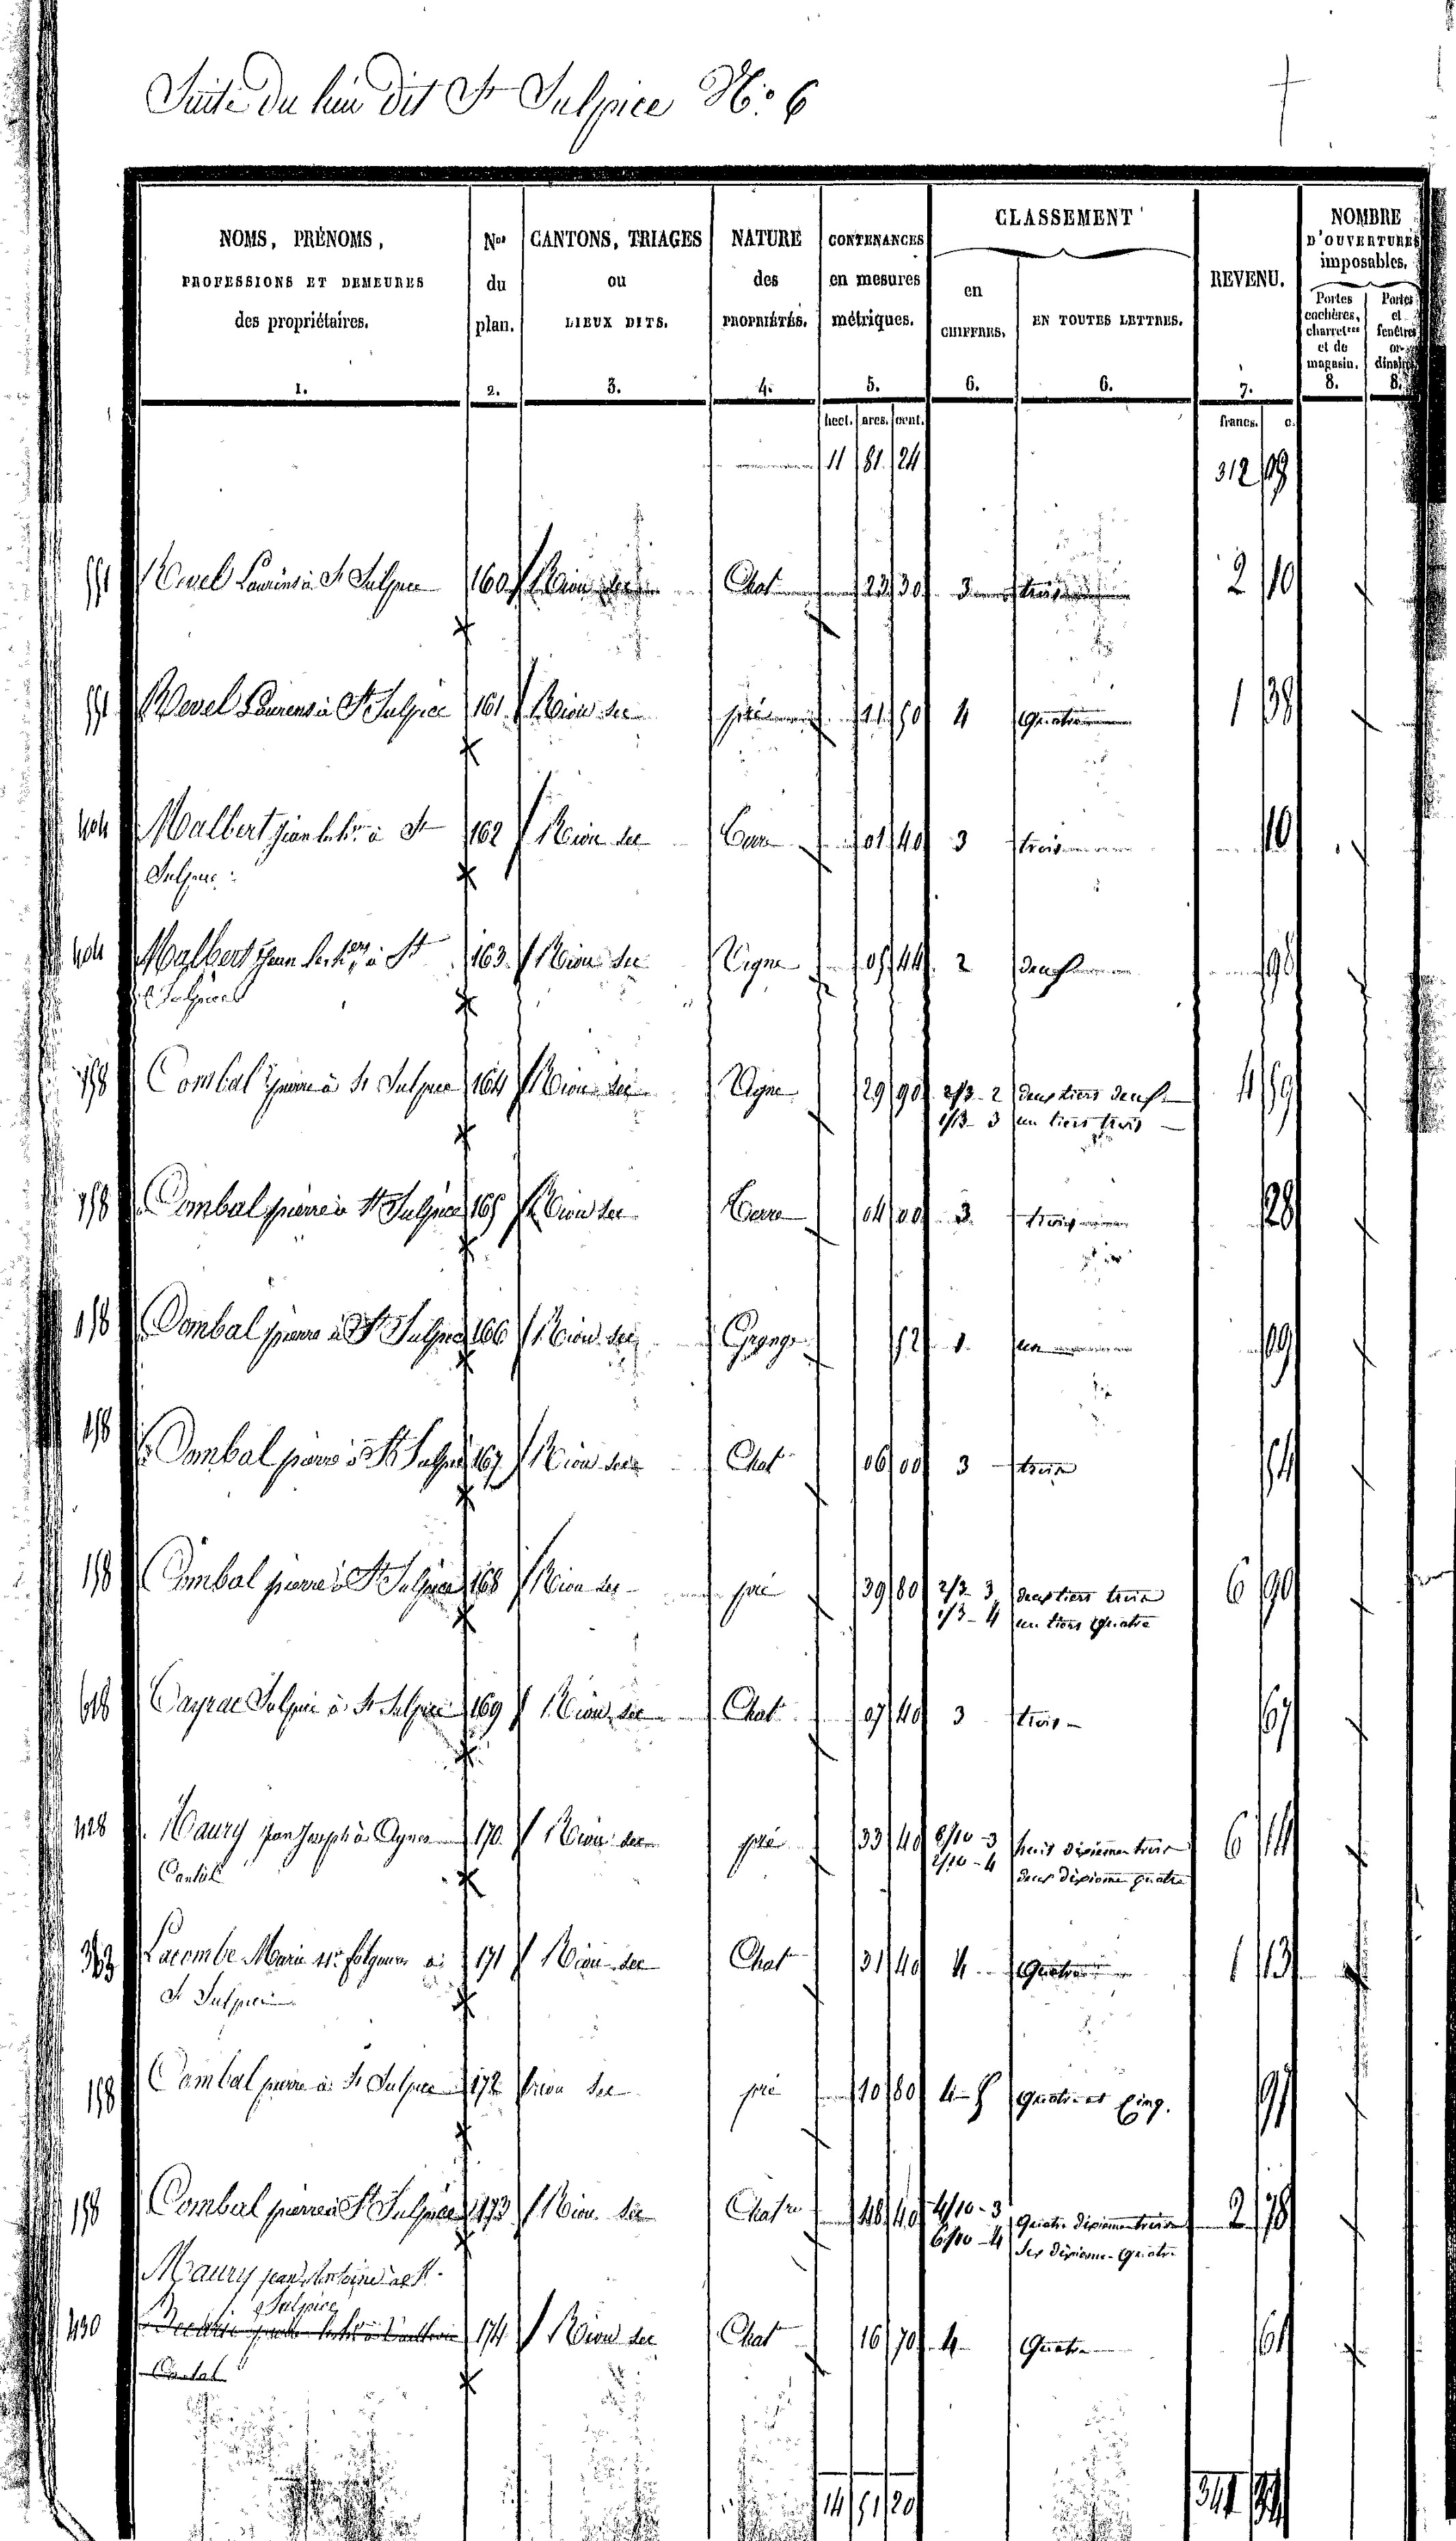 Suite du lieu dit St Sulpice N.° 6
NOMS, PRÉNOMS, PROFESSIONS ET DEMEURES des propriétaires. 1.
Nos du plan. 2.
CANTONS, TRIAGES ou LIEUX DITS. 3.
NATURE des PROPRIÉTÉS. 4.
CONTENANCES en mesures métriques. 5.
CLASSEMENT
en CHIFFRES. 6.
EN TOUTES LETTRES. 6.
REVENU. 7.
NOMBRE D'OUVERTURES imposables.
Portes cochères, charret.res et de magasin. 8.
Portes et fenêtres ordinaires 8.
hect. ares. cent. francs. c.
11 81 24 312
551 Revel Laurens à St Sulpice 160 Rieu sec Chat 23 30 3 trois 2 10
551 Revel Laurens à St Sulpice 161 Rieu sec pré 11 50 4 Quatre 1 38
404 Malbert jean à St 162 Rieu sec 01 40 3 trois 10
Sulpice
404 Malbert jean à St 163 Rieu sec Vigne 05 44 2 deux 98
Sulpice
158 Combal pierre à St Sulpice 164 Rieu sec Vigne 29 90 2/3 - 2 deux tiers deux 4 59
1/3 - 3 un tiers trois
158 Combal pierre à St Sulpice 165 Rieu sec Terre 04 00 3 trois 28
158 Combal pierre à St Sulpice 166 Rieu sec Grange 52 1 un 09
158 Combal pierre à St Sulpice 167 Rieu sec Chat 06 00 3 trois 54
158 Combal pierre à St Sulpice 168 Rieu sec pré 39 80 2/3 3 deux tiers trois 6 90
1/3 - 4 un tiers Quatre
618 Cayrac Sulpice à St Sulpice 169 Rieu sec Chat 07 40 3 trois 67
428 Maury jean joseph à 170 Rieu sec pré 33 40 8/10 - 3 huit dixiemes trois 6 14
Cantal 2/10 - 4 deux dixieme quatre
363 Lacombe Marie à 171 Rieu sec Chat 31 40 4 Quatre 1 13
St Sulpice
158 Combal pierre à St Sulpice 172 Rieu sec pré 10 80 4 - 5 Quatre et Cinq. 91
158 Combal pierre à St Sulpice 173 Rieu sec 48 40 4/10 - 3 Quatre dixiemes trois 2 78
6/10 - 4 Six dixieme Quatre
Maury jean Antoine à St
Sulpice
430 174 Rieu sec Chat 16 70 4 Quatre 61
Cantal
14 51 20 341